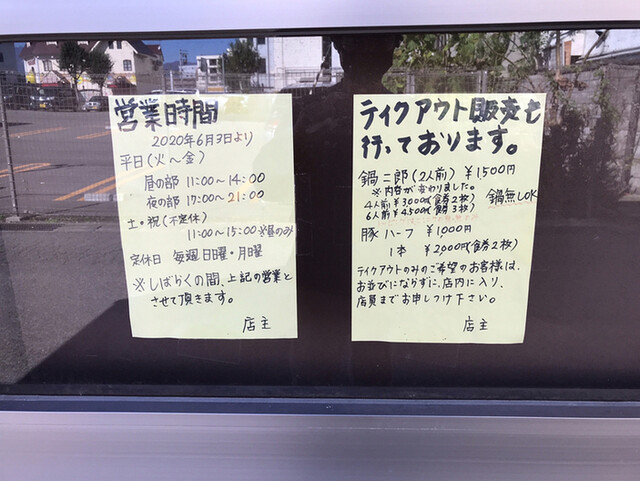 営業時間
2020年6月3日より
平日(火〜金)
昼の部 11:00〜14:00
夜の部 17:00〜21:00
土・祝(不定休)
11:00〜15:00 ※昼のみ
定休日 毎週日曜・月曜
※しばらくの間、上記の営業と
させて頂きます。
店主
テイクアウト販売も
行っております。
鍋二郎(2人前) ¥1500円
※内容が変わりました。
4人前¥3,000(食券2枚) 鍋無しOK
6人前¥4500(食券3枚)
豚ハーフ ¥1,000円
1本 ¥2,000円(食券2枚)
テイクアウトのみのご希望のお客様は、
お並びにならずに、店内に入り、
店員までお申しつけ下さい。
店主